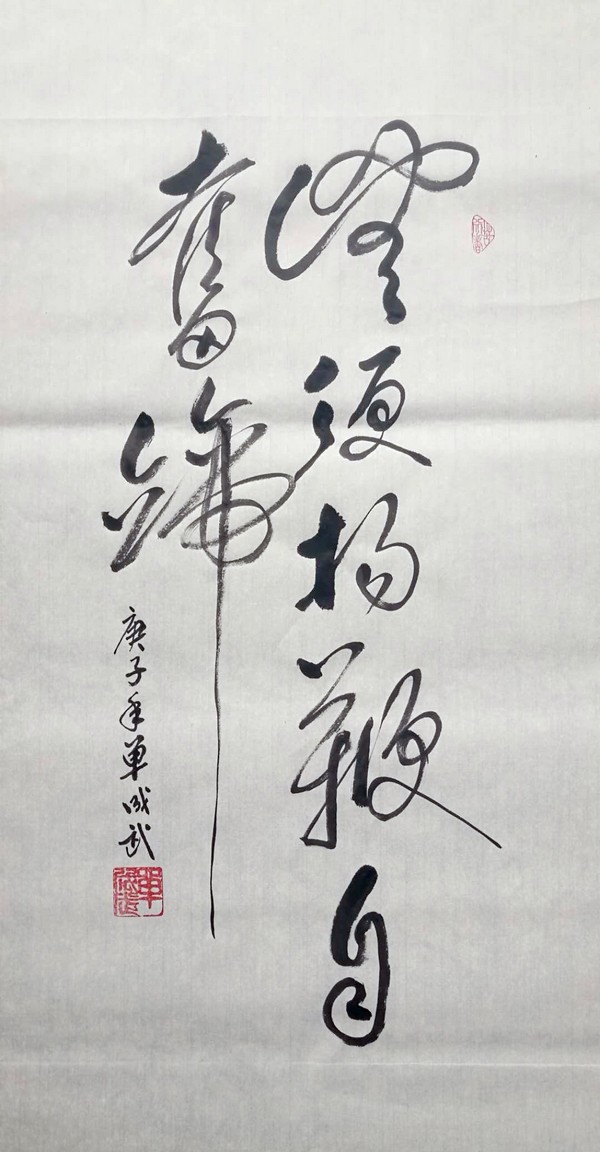 無須揚鞭自
奮蹄
庚子年单成武